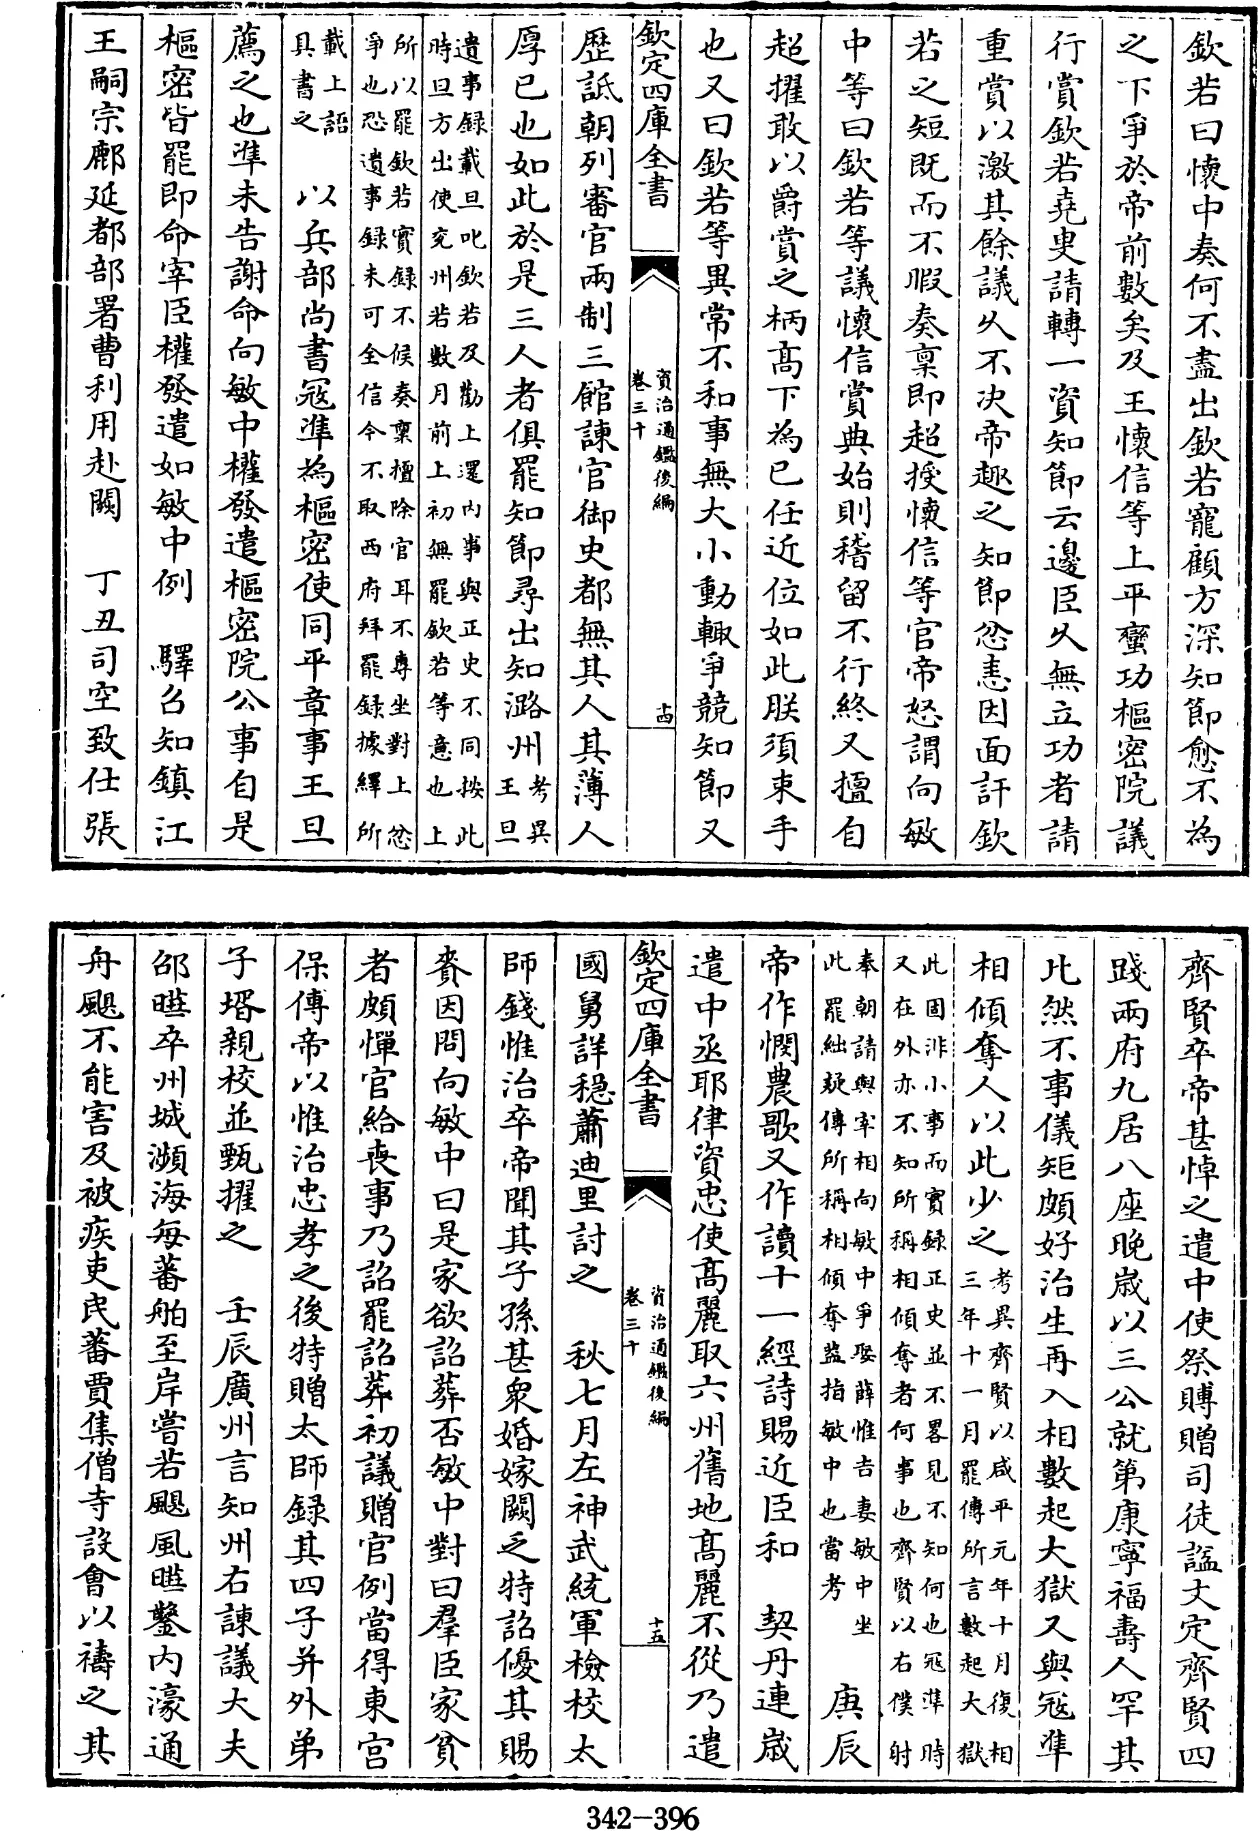 欽若曰懷中奏何不盡出欽若寵顧方深知節愈不為
之下爭於帝前數矣及王懷信等上平蠻功樞密院議
行賞欽若堯叟請轉一資知節云邊臣乆無立功者請
重賞以激其餘議乆不决帝趣之知節忿恚因面訐欽
若之短既而不暇奏稟即超授懷信等官帝怒謂向敏
中等曰欽若等議懷信賞典始則稽留不行終又擅自
超擢敢以爵賞之柄髙下為已任近位如此朕須束手
也又曰欽若等異常不和事無大小動輙爭競知節又
欽定四庫全書
資治通鑑後編
卷三十
十四
歴詆朝列審官兩制三館諫官御史都無其人其薄人
厚已也如此於是三人者俱罷知節尋出知潞州考異
王旦
遺事録載旦叱欽若及勸上還内事與正史不同按此
時旦方出使兖州若數月前上初無罷欽若等意也上
所以罷欽若實録不候奏稟擅除官耳不專坐對上忿
爭也恐遺事録未可全信今不取西府拜罷録據繹所
載上語
具書之
以兵部尚書冦準為樞密使同平章事王旦
薦之也準未告謝命向敏中權發遣樞密院公事自是
樞密皆罷即命宰臣權發遣如敏中例　驛召知鎮江
王嗣宗鄜延都部署曹利用赴闕　丁丑司空致仕張
齊賢卒帝甚悼之遣中使祭賻贈司徒諡文定齊賢四
踐兩府九居八座晩歳以三公就第康寧福壽人罕其
比然不事儀矩頗好治生再入相數起大獄又與冦準
相傾奪人以此少之考異齊賢以咸平元年十月復相
三年十一月罷傳所言數起大獄
此固非小事而實録正史並不畧見不知何也冦準時
又在外亦不知所稱相傾奪者何事也齊賢以右僕射
奉朝請與宰相向敏中爭娶薛惟吉妻敏中坐
此罷絀疑傳所稱相傾奪葢指敏中也當考
庚辰
帝作憫農歌又作讀十一經詩賜近臣和　契丹連歳
遣中丞耶律資忠使髙麗取六州舊地髙麗不從乃遣
欽定四庫全書
資治通鑑後編
卷三十
十五
國舅詳穏蕭迪里討之　秋七月左神武統軍檢校太
師錢惟治卒帝聞其子孫甚衆婚嫁闕乏特詔優其賜
賚因問向敏中曰是家欲詔葬否敏中對曰羣臣家貧
者頗憚官給喪事乃詔罷詔葬初議贈官例當得東宫
保傅帝以惟治忠孝之後特贈太師録其四子并外弟
子壻親校並甄擢之　壬辰廣州言知州右諫議大夫
邵曄卒州城瀕海每蕃舶至岸嘗若颶風曄鑿内濠通
舟颶不能害及被疾吏民蕃賈集僧寺設會以禱之其
342-396